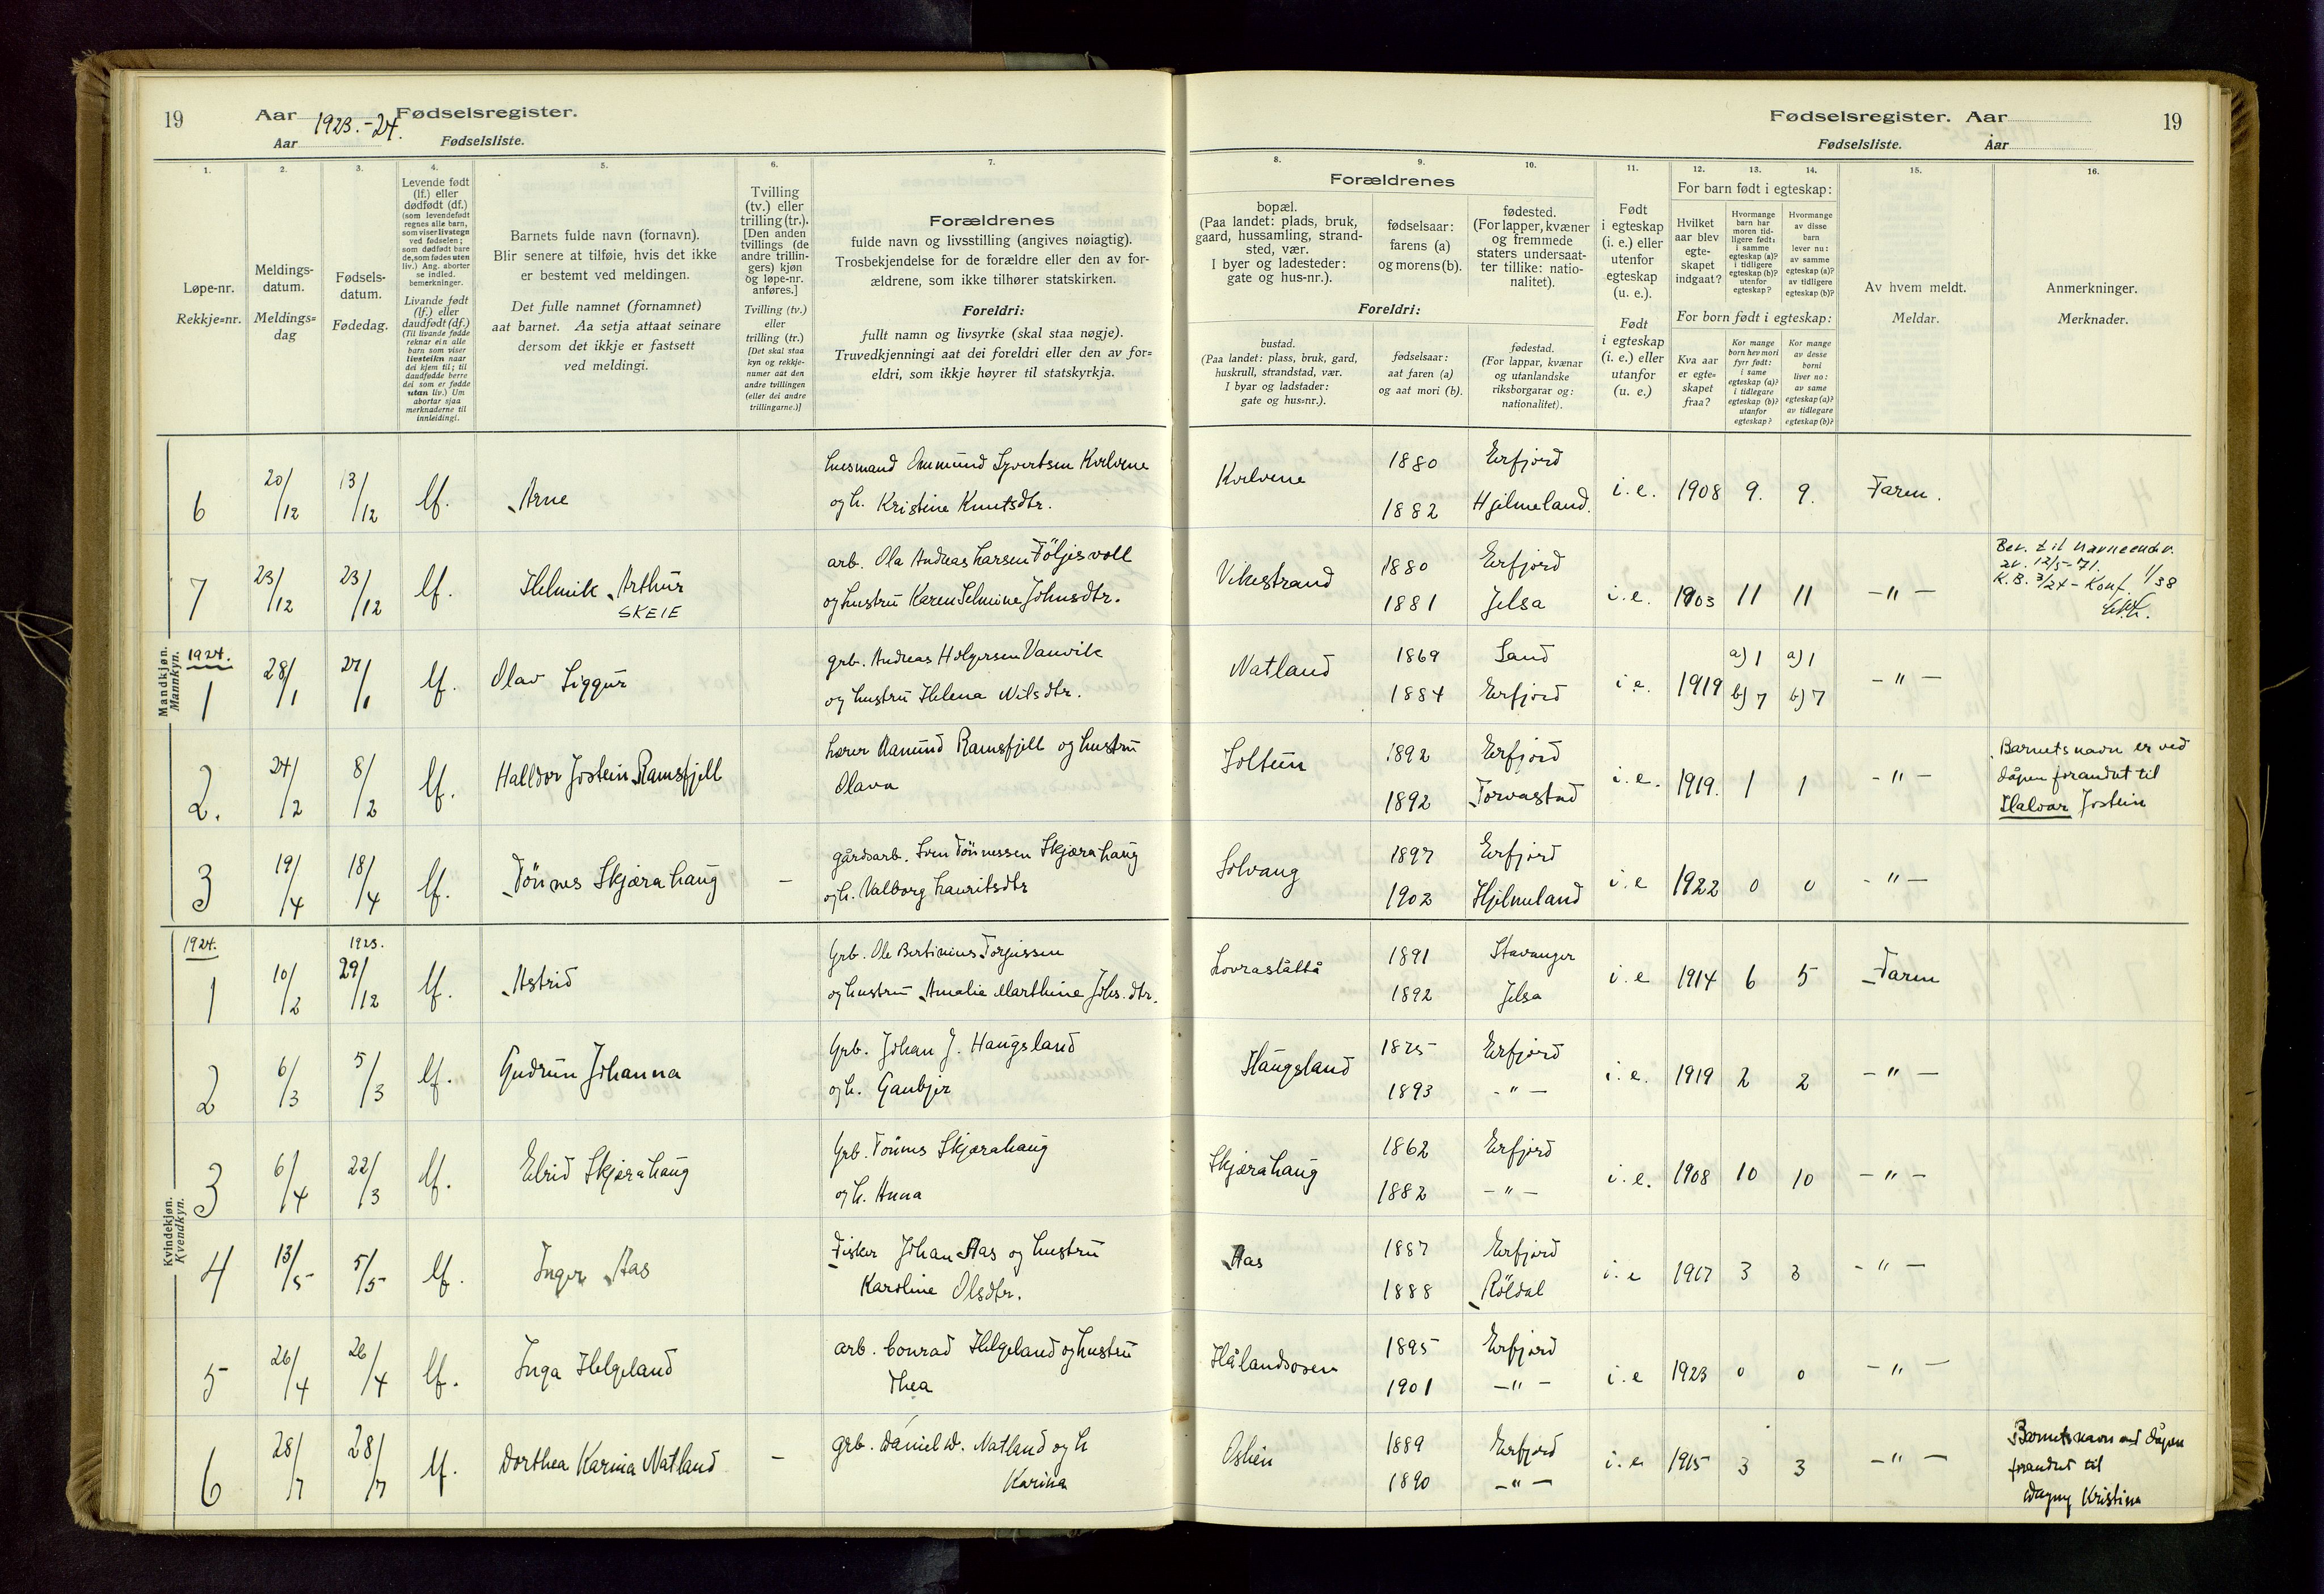 19
Aar 1923.-24. Fødselsregister.
Aar Fødselsliste.
Fødselsregister. Aar
19
Fødselsliste. Aar
1.
Løpe-nr.
Rekkje=nr.
2.
Meldings-
datum.
Meldings=
dag
3.
Fødsels-
datum.
Fødedag.
4.
Levende født
(lf.) eller
dødfødt (df.)
(som levendefødt
regnes alle barn,
som viser livstegn
ved fødselen;
som dødfødt bare
de, som fødes uten
liv.) Ang. aborter
se indled.
bemerkninger.
Livande født
(lf.) eller
daudfødt (df.)
(Til livande fødde
reknar ein alle
barn som viser
livsteikn naar
dei kjem til; til
daudfødde berre
dei som er fødde
utan liv.) Um
abortar sjaa
merknaderne til
innleidingi.
5.
Barnets fulde navn (fornavn).
Blir senere at tilføie, hvis det ikke
er bestemt ved meldingen.
Det fulle namnet (fornamnet)
aat barnet. Aa setja attaat seinare
dersom det ikkje er fastsett
ved meldingi.
6.
Tvilling
(tv.) eller
trilling (tr.).
[Den anden
tvillings (de
andre trillin-
gers) kjøn
og løpe-nr.
anføres.]
Tvilling (tv.)
eller
trilling (tr.)
[Det skal staa
kyn og rekkje-
numer aat den
andre tvillingen
(eller dei andre
trillingarne.)]
7.
Forældrenes
fulde navn og livsstilling (angives nøiagtig).
Trosbekjendelse for de forældre eller den av for-
ældrene, som ikke tilhører statskirken.
Foreldri:
fullt namn og livsyrke (skal staa nøgje).
Truvedkjenningi aat dei foreldri eller den av for=
eldri, som ikkje høyrer til statskyrkja.
8.
Forældrenes
bopæl.
(Paa landet: plads, bruk,
gaard, hussamling, strand-
sted, vær.
I byer og ladesteder:
gate og hus-nr.).
Foreldri:
bustad.
(Paa landet: plass, bruk, gard,
huskrull, strandstad, vær.
I byar og ladstader:
gate og hus=nr.).
9.
fødselsaar:
farens (a)
og morens (b).
fødselsaar:
aat faren (a)
og aat mori (b).
10.
fødested.
(For lapper, kvæner
og fremmede
staters undersaat-
ter tillike: natio-
nalitet).
fødestad.
(For lappar, kvænar
og utanlandske
riksborgarar og:
nationalitet).
11.
Født
i egteskap
(i. e.) eller
utenfor
egteskap
(u. e.).
Født
i egteskap
(i. e.) eller
utanfor
(u. e.).
12. 13. 14.
For barn født i egteskap:
Hvilket
aar blev
egte-
skapet
indgaat?
Hvormange
barn har
moren tid-
ligere født:
i samme
egteskap (a)?
i tidligere
egteskap (b)?
utenfor
egteskap?
Hvormange
av disse
barn
lever nu:
av samme
egteskap (a)?
av tidligere
egteskap (b)?
For born født i egteskap:
Kva aar
er egte=
skapet
fraa?
Kor mange
born hev mori
fyrr født:
i same
egteskap (a)?
i tidlegare
egteskap (b)?
utanfor
egteskap?
Kor mange
av desse
borni
liver no:
av same
egteskap (a)?
av tidlegare
egteskap (b)?
15.
Av hvem meldt.
Meldar.
16.
Anmerkninger.
Merknader.
Mandkjøn.
Mannkyn.
6 20/12 13/12 lf. Arne
husmand Ommund Syvertsen Kvelvene
og h. Kristine Knutsdtr.
Kvelvene 1880 Erfjord
1882 Hjelmeland. i.e. 1908 9. 9. Faren.
7 23/12 23/12 lf. Helmik Arthur
SKEIE
arb. Ola Andreas Larsen Följesvoll
og hustru Karen Selmine Johnsdtr.
Vikestrand 1880 Erfjord
1881 Jelsa i.e. 1903 11 11 -"-
Bev. til navneendr.
av 12/5-71.
K.B. 3/24 - Konf. 1/38
1924.
1 28/1 27/1 lf. Olav Siggur
grb. Andreas Holgersen Vanvik
og hustru Helena Nilsdtr.
Natland 1869 Sand
1884 Erfjord i.e. 1919 a) 1 a) 1
b) 7 b) 7 -"-
2. 24/2 8/2 lf. Halldor Jostein Ramsfjell
Lærer Aamund Ramsfjell og hustru
Olava
Soltun 1892 Erfjord
1892 Torvastad i.e. 1919. 1 1 -"-
Barnets navn er ved
dåpen forandret til
Halvar Jostein
3 19/4 18/4 lf. Tönnes Skjærahaug -
gårdsarb. Sven Tönnessen Skjærahaug
og h. Valborg Lauritsdtr
Solvang 1897 Erfjord
1902 Hjelmeland i.e 1922 0 0 -"-
Kvindekjøn.
Kvendkyn.
1924. 1923.
1 10/2 29/12 lf. Astrid
Grb. Ole Bertinius Torgussen
og hustru Amalie Marthine Johs. dtr.
Lovraslåttå 1891 Stavanger
1892 Jelsa i.e 1914 6 5 Faren
2 6/3 5/3 lf. Gudrun Johanna
Grb. Johan J. Haugsland
og h. Gunbjør
Haugsland 1875 Erfjord
1893 -"- i.e. 1919 2 2 -"-
3 6/4 22/3 lf. Elrid Skjærahaug
Grb. Tönnes Skjærahaug
og h. Anna
Skjærahaug 1862 Erfjord
1882 -"- i.e. 1908 10 10 -"-
4 13/5 5/5 lf. Inger Aas
Fisker Johan Aas og hustru
Karoline Olsdtr.
Aas 1887 Erfjord
1888 Röldal i.e 1917 3 3 -"-
5 26/4 26/4 lf. Inga Helgeland
arb. Conrad Helgeland og hustru
Thea
Hålandsosen 1895 Erfjord
1901 -"- i.e 1923 0 0 -"-
6 28/7 28/7 lf. Dorthea Karina Natland -
grb. Daniel D. Natland og h
Karina
Oshein 1889 Erfjord
1890 -"- i.e. 1915 3 3 -"-
Barnets navn ved dåpen
forandret til
Dagny Kristina